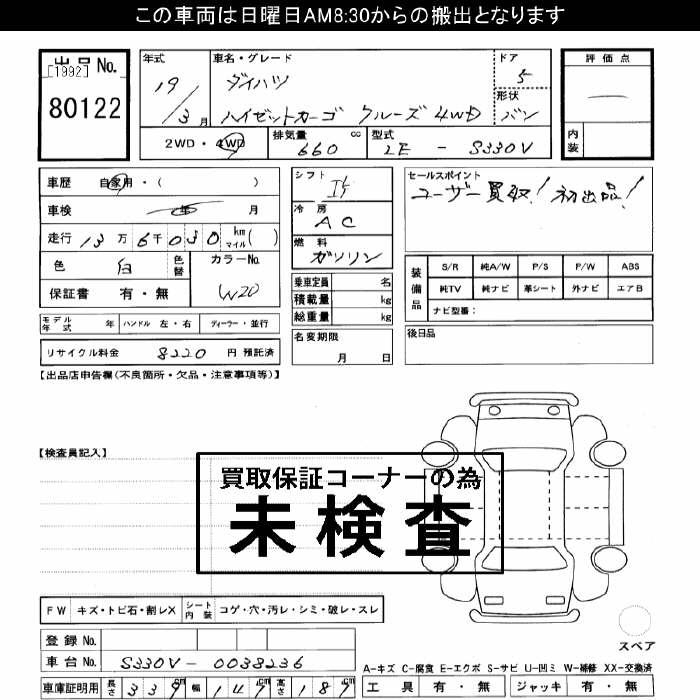 この車両は日曜日AM8:30からの搬出となります
出品 No.
[1992]
80122
年式
19/3月
車名・グレード
ダイハツ
ハイゼットカーゴ クルーズ 4WD
ドア
5
形状
バン
評価点
内装
2WD・4WD
排気量 660 cc
型式 LE - S330V
車歴 自家用・( )
車検 年 月
走行 13万6千030 km マイル( )
色 白 色替
カラーNo. W20
保証書 有・無
シフト
冷房 AC
燃料 ガソリン
乗車定員 名
積載量 kg
総重量 kg
セールスポイント
ユーザー買取! 初出品!
装備品
S/R 純A/W P/S P/W ABS
純TV 純ナビ 革シート 外ナビ エアB
ナビ型番:
モデル年式 年 ハンドル 左・右 ディーラー・並行
名変期限 月 日
後日品
リサイクル料金 8220 円 預託済
【出品店申告欄(不良箇所・欠品・注意事項等)】
【検査員記入】
買取保証コーナーの為
未検査
FW キズ・トビ石・割レX シート内装 コゲ・穴・汚レ・シミ・破レ・スレ
登録 No.
車台 No. S330V-0038236
スペア
A-キズ C-腐食 E-エクボ S-サビ U-凹ミ W-補修 XX-交換済
車庫証明用 長さ 339cm 幅 147cm 高さ 187cm
工具 有・無 ジャッキ 有・無